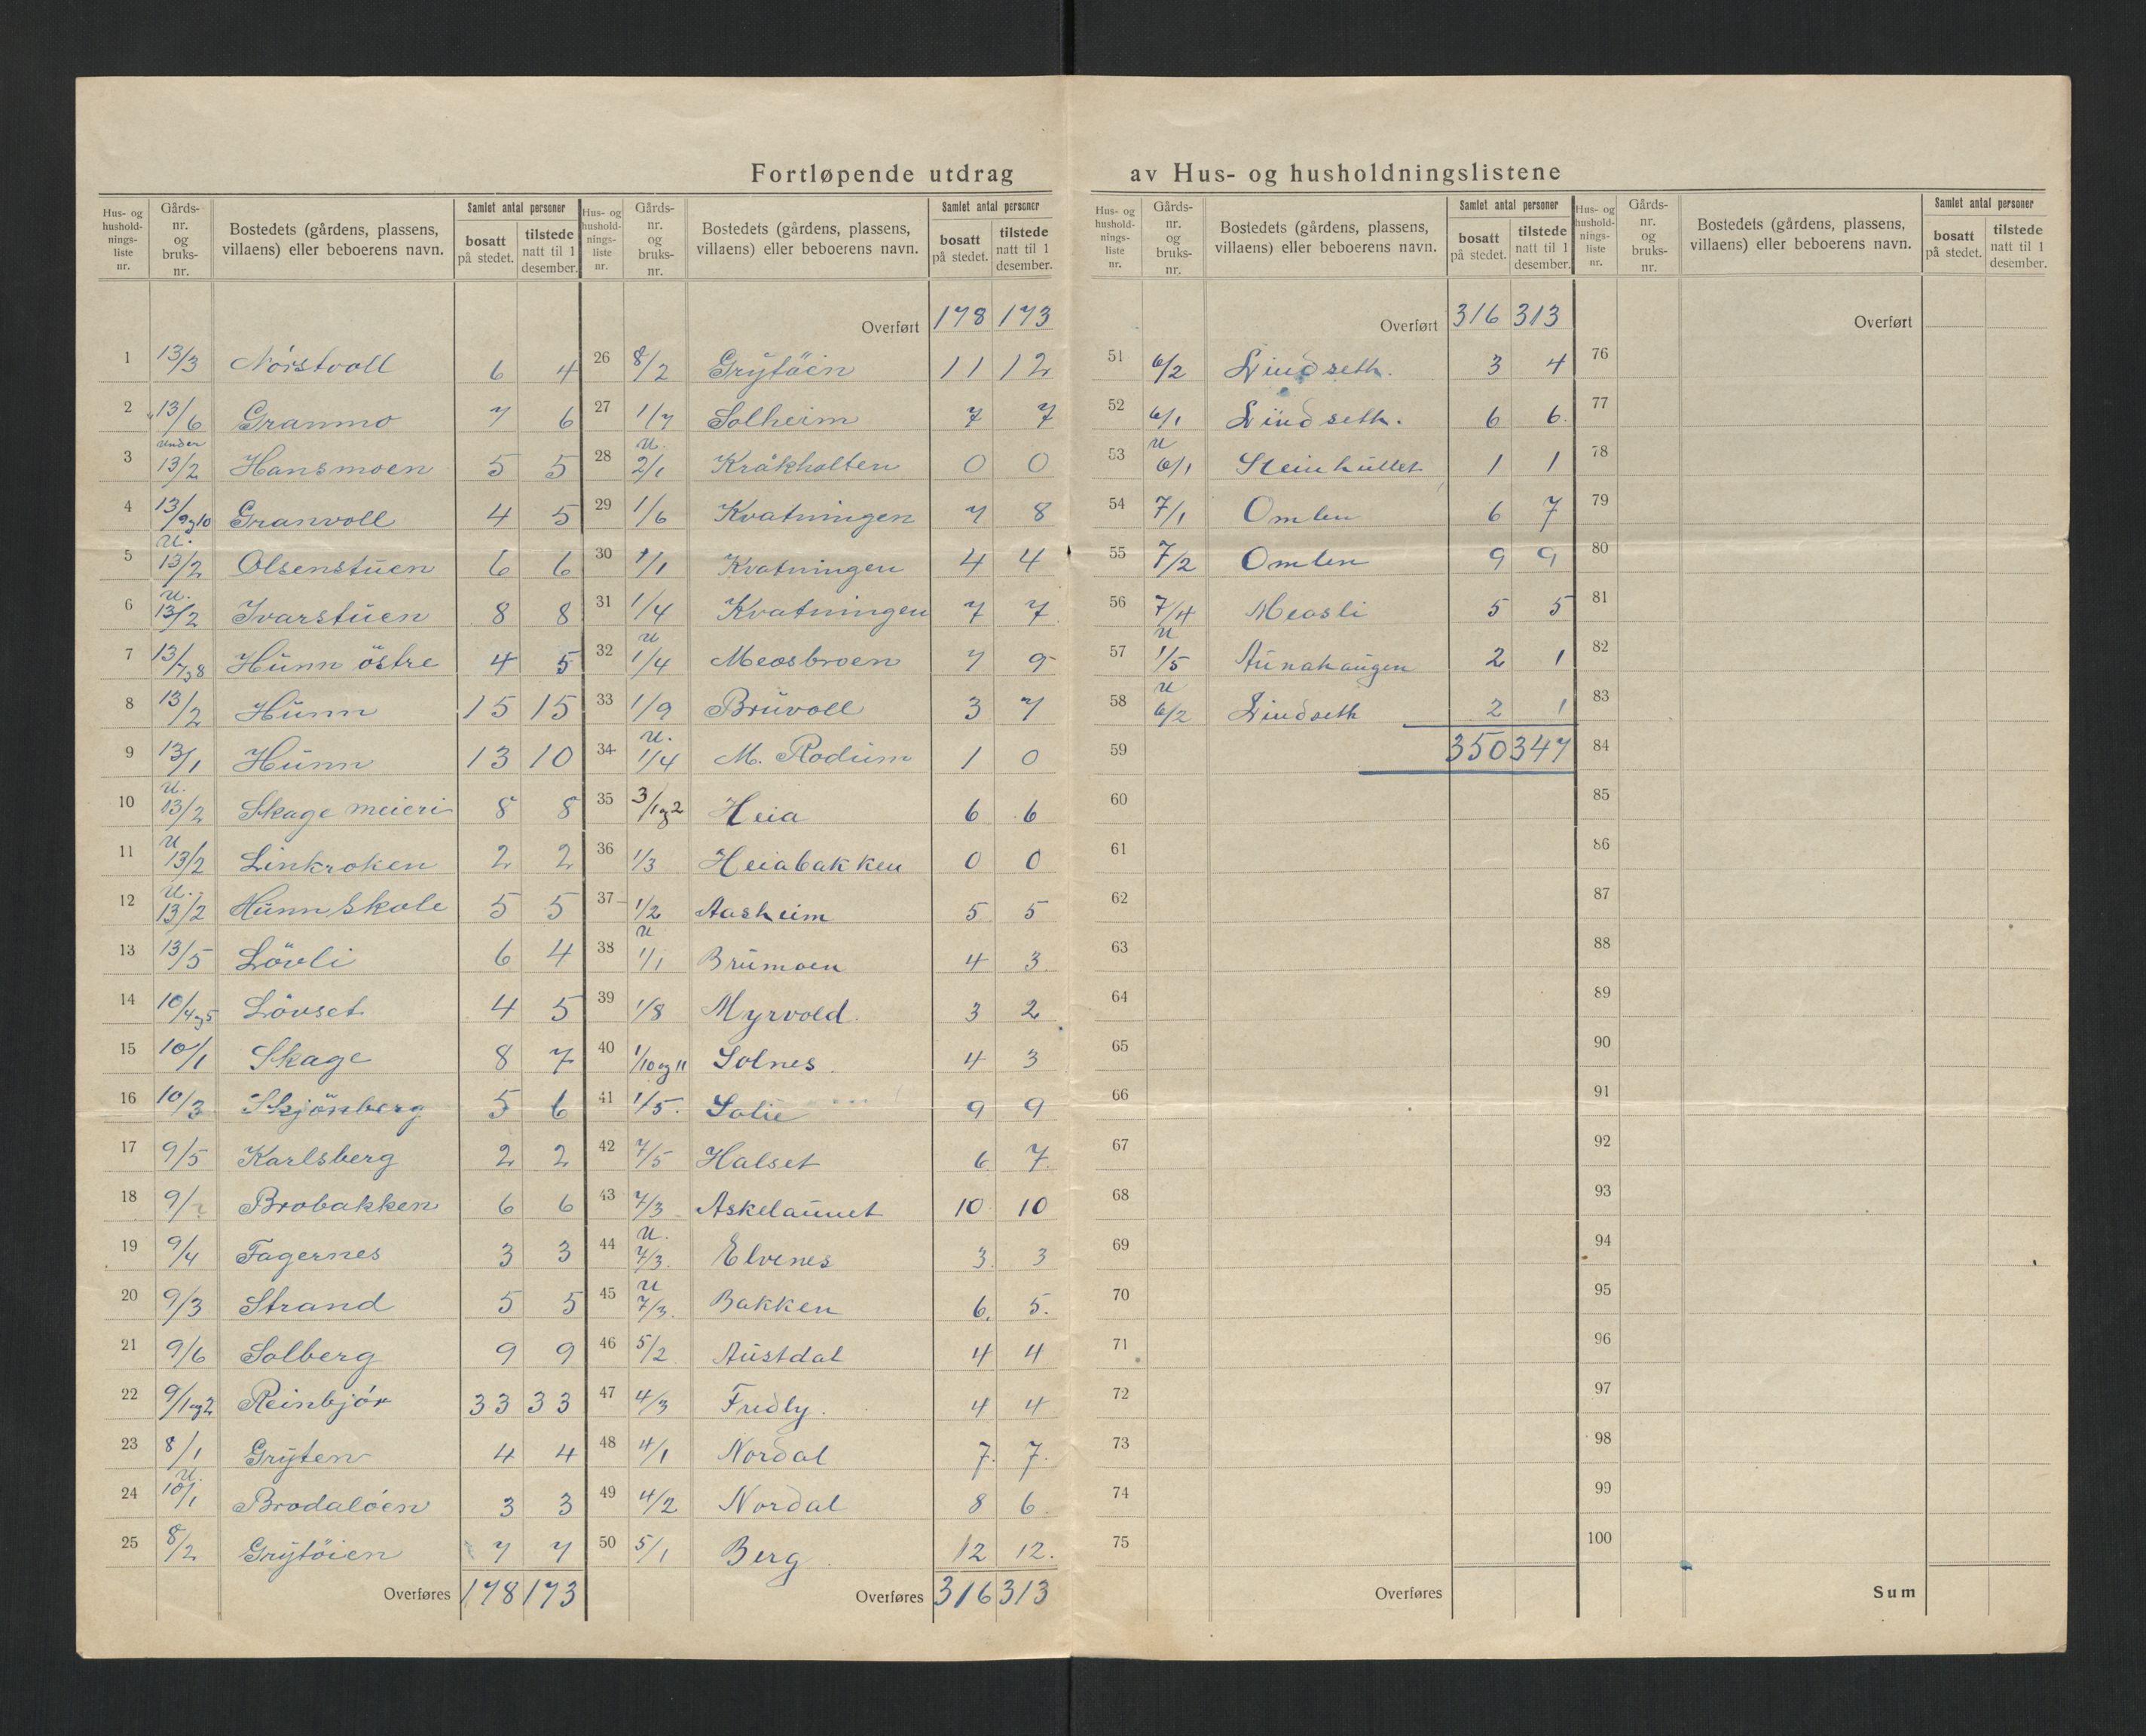 Fortløpende utdrag av Hus- og husholdningslistene
Hus- og hushold- nings- liste nr. | Gårds- nr. og bruks- nr. | Bostedets (gårdens, plassens, villaens) eller beboerens navn. | Samlet antal personer | bosatt på stedet. | tilstede natt til 1 desember.
1 13/3 Nórstvoll 6 4
2 13/6 Granmo 7 6
3 under 13/2 Hansmoen 5 5
4 13/9og10 Granvoll 4 5
5 U. 13/2 Olsenstuen 6 6
6 U. 13/2 Ivarstuen 8 8
7 13/7og8 Hunn östre 4 5
8 13/2 Hunn 15 15
9 13/1 Hunn 13 10
10 U. 13/2 Skage meieri 8 8
11 U 13/2 Linkroken 2 2
12 U. 13/2 Hunn Skole 5 5
13 13/5 Lövli 6 4
14 10/4og5 Lövset 4 5
15 10/1 Skage 8 7
16 10/3 Skjönberg 5 6
17 9/5 Karlsberg 2 2
18 9/ Brobakken 6 6
19 9/4 Fagernes 3 3
20 9/3 Strand 5 5
21 9/6 Solberg 9 9
22 9/1og2 Reinbjör 33 33
23 8/1 Gryten 4 4
24 U. 10/1 Brodalóen 3 3
25 8/2 Grytöien 7 7
Overføres 178 173
Hus- og hushold- nings- liste nr. | Gårds- nr. og bruks- nr. | Bostedets (gårdens, plassens, villaens) eller beboerens navn. | Samlet antal personer | bosatt på stedet. | tilstede natt til 1 desember.
Overført 178 173
26 8/2 Grytöien 11 12
27 1/7 Solheim 7 7
28 U. 2/1 Kråkholten 0 0
29 1/6 Kvatningen 7 8
30 1/1 Kvatningen 4 4
31 1/4 Kvatningen 7 7
32 U 1/4 Meosbroen 7 9
33 1/9 Bruvoll 3 7
34 U. 1/4 M. Rodum 1 0
35 3/1og2 Heia 6 6
36 1/3 Heiabakken 0 0
37 1/2 Aasheim 5 5
38 U 1/1 Brumoen 4 3
39 1/8 Myrvold. 3 2
40 1/10og11 Solnes. 4 3
41 1/5. Solie 9 9
42 7/5 Halset 6 7.
43 7/3 Askelaunet 10 10
44 U. 7/3. Elvenes 3. 3
45 U 7/3. Bakken 6. 5.
46 5/2 Austdal 4 4
47 4/3 Fredly. 4 4
48 4/1 Nordal 7. 7.
49 4/2 Nordal 8 6.
50 5/1 Berg 12 12.
Overføres 316 313
Hus- og hushold- nings- liste nr. | Gårds- nr. og bruks- nr. | Bostedets (gårdens, plassens, villaens) eller beboerens navn. | Samlet antal personer | bosatt på stedet. | tilstede natt til 1 desember.
Overført 316 313
51 6/2 Lindseth. 3 4
52 6/1 Lindseth. 6 6.
53 U 6/1 Steinhullet 1 1
54 7/1 Omlen 6 7
55 7/2 Omlen 9 9
56 7/4 Meosli 5 5
57 U 1/5 Aunahaugen 2 1
58 U 6/2 Lindseth 2 1
59 350 347
60
61
62
63
64
65
66
67
68
69
70
71
72
73
74
75
Overføres
Hus- og hushold- nings- liste nr. | Gårds- nr. og bruks- nr. | Bostedets (gårdens, plassens, villaens) eller beboerens navn. | Samlet antal personer | bosatt på stedet. | tilstede natt til 1 desember.
Overført
76
77
78
79
80
81
82
83
84
85
86
87
88
89
90
91
92
93
94
95
96
97
98
99
100
Sum